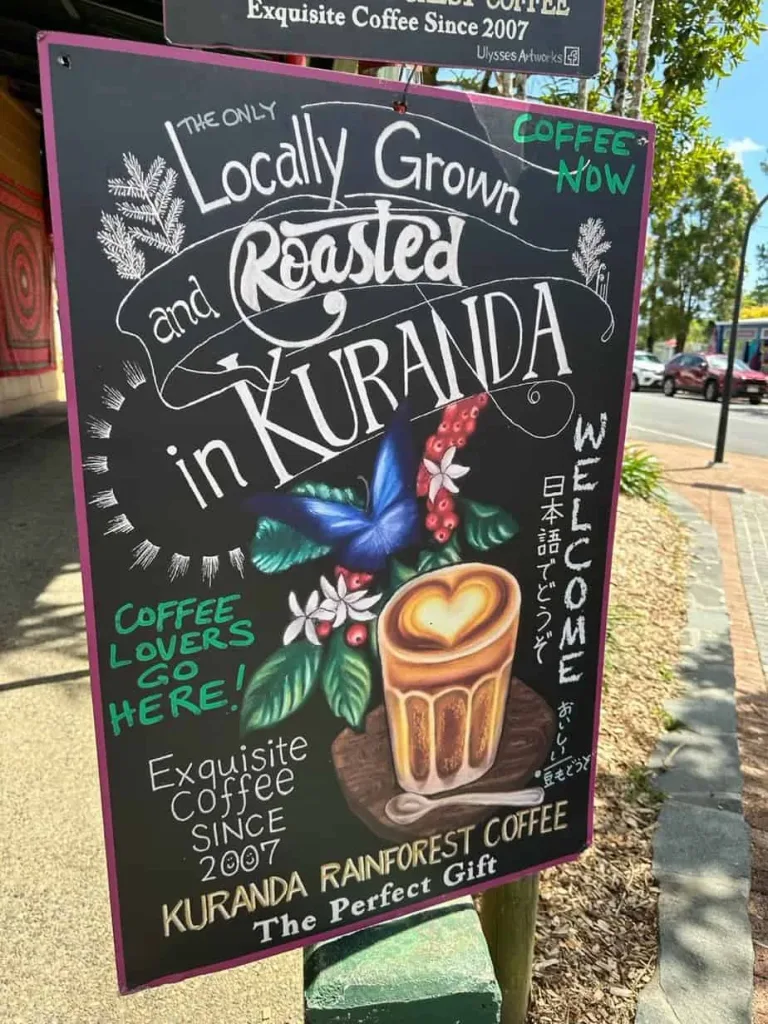 EST COFFEE
Exquisite Coffee Since 2007
Ulysses Artworks
THE ONLY
Locally Grown
COFFEE
NOW
and Roasted
in KURANDA
WELCOME
日本語でどうぞ
COFFEE
LOVERS
GO
HERE!
おいしい
豆もどうぞ
Exquisite
Coffee
SINCE
2007
KURANDA RAINFOREST COFFEE
The Perfect Gift